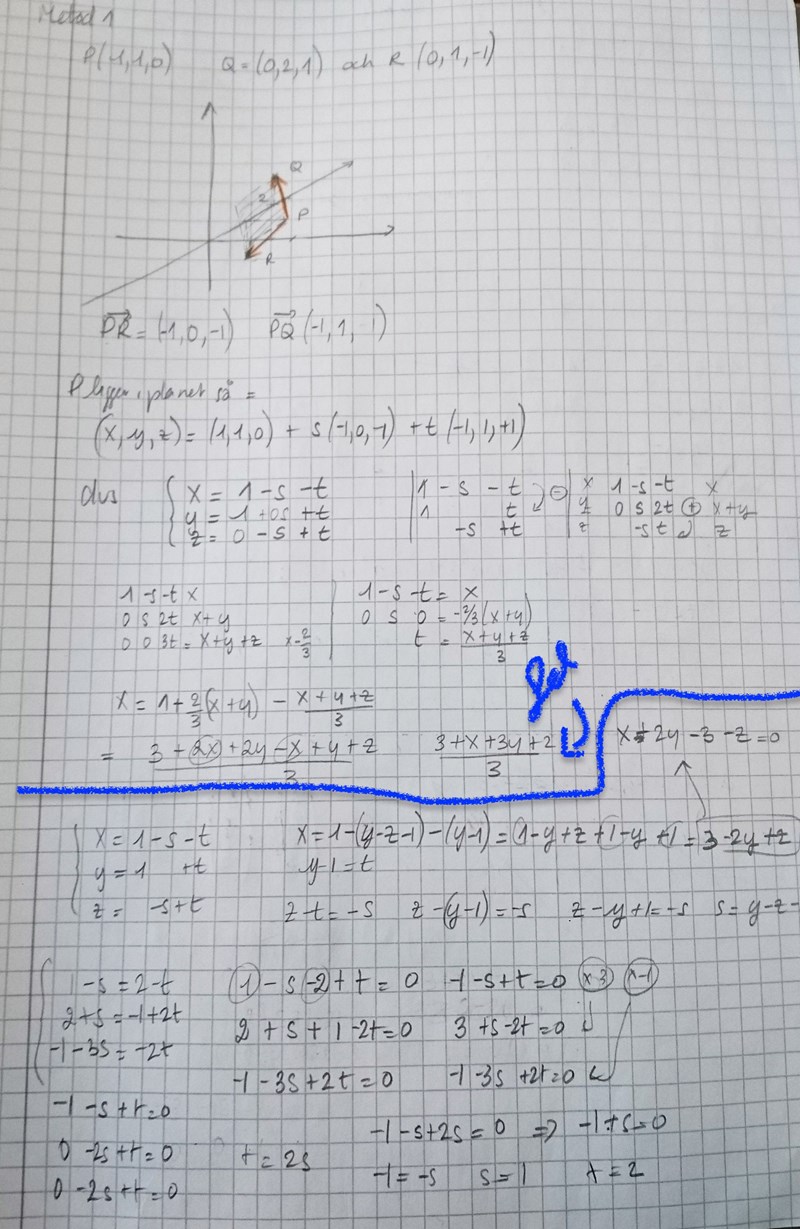 Metod 1
P(1,1,0) Q=(0,2,1) och R (0,1,-1)
Q
2
P
R
PR = (-1,0,-1) PQ (-1, 1, 1)
P ligger i planet så =
(x,y,z) = (1,1,0) + s(-1,0,-1) + t(-1,1,+1)
dvs { x = 1-s-t
y = 1+0s+t
z = 0-s+t
1 - s - t
1 t
-s +t
⊖
x 1-s-t x
y 0 s 2t ⊕ x+y
z -s t z
1-s-t x
0 s 2t x+y
0 0 3t = x+y+z x-2/3
1-s-t = x
0 s 0 = -2/3(x+y)
t = (x+y+z)/3
x = 1+2/3(x+y) - (x+y+z)/3
= (3+2x+2y-x+y+z)/3 (3+x+3y+z)/3
x+2y-3-z=0
{ x=1-s-t x=1-(y-z-1)-(y-1)=1-y+z+1-y+1=3-2y+z
y=1 +t y-1=t
z= -s+t z-t=-s z-(y-1)=-s z-y+1=-s s=y-z-
{ 1-s=2-t 1-s-2+t=0 -1-s+t=0 x3 x-1
2+s=-1+2t 2+s+1-2t=0 3+s-2t=0
-1-3s=-2t -1-3s+2t=0 -1-3s+2t=0
-1-s+t=0
0-2s+t=0 t=2s -1-s+2s=0 ⇒ -1+s=0
0-2s+t=0 -1=-s s=1 t=2